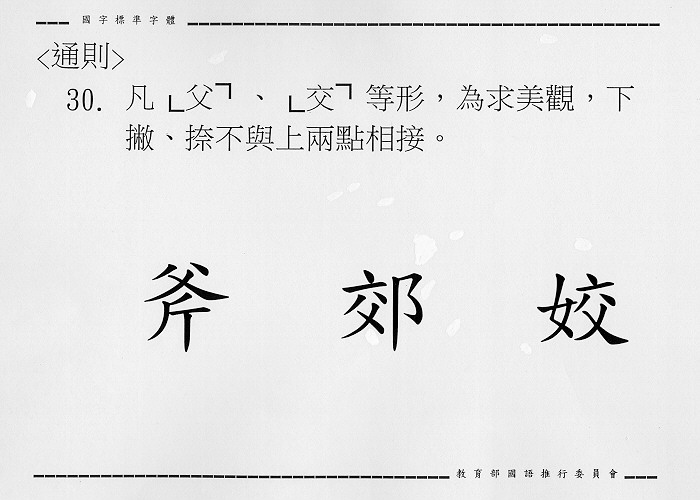 國字標準字體
<通則>
30. 凡「父」、「交」等形，為求美觀，下
撇、捺不與上兩點相接。
斧 郊 姣
教育部國語推行委員會